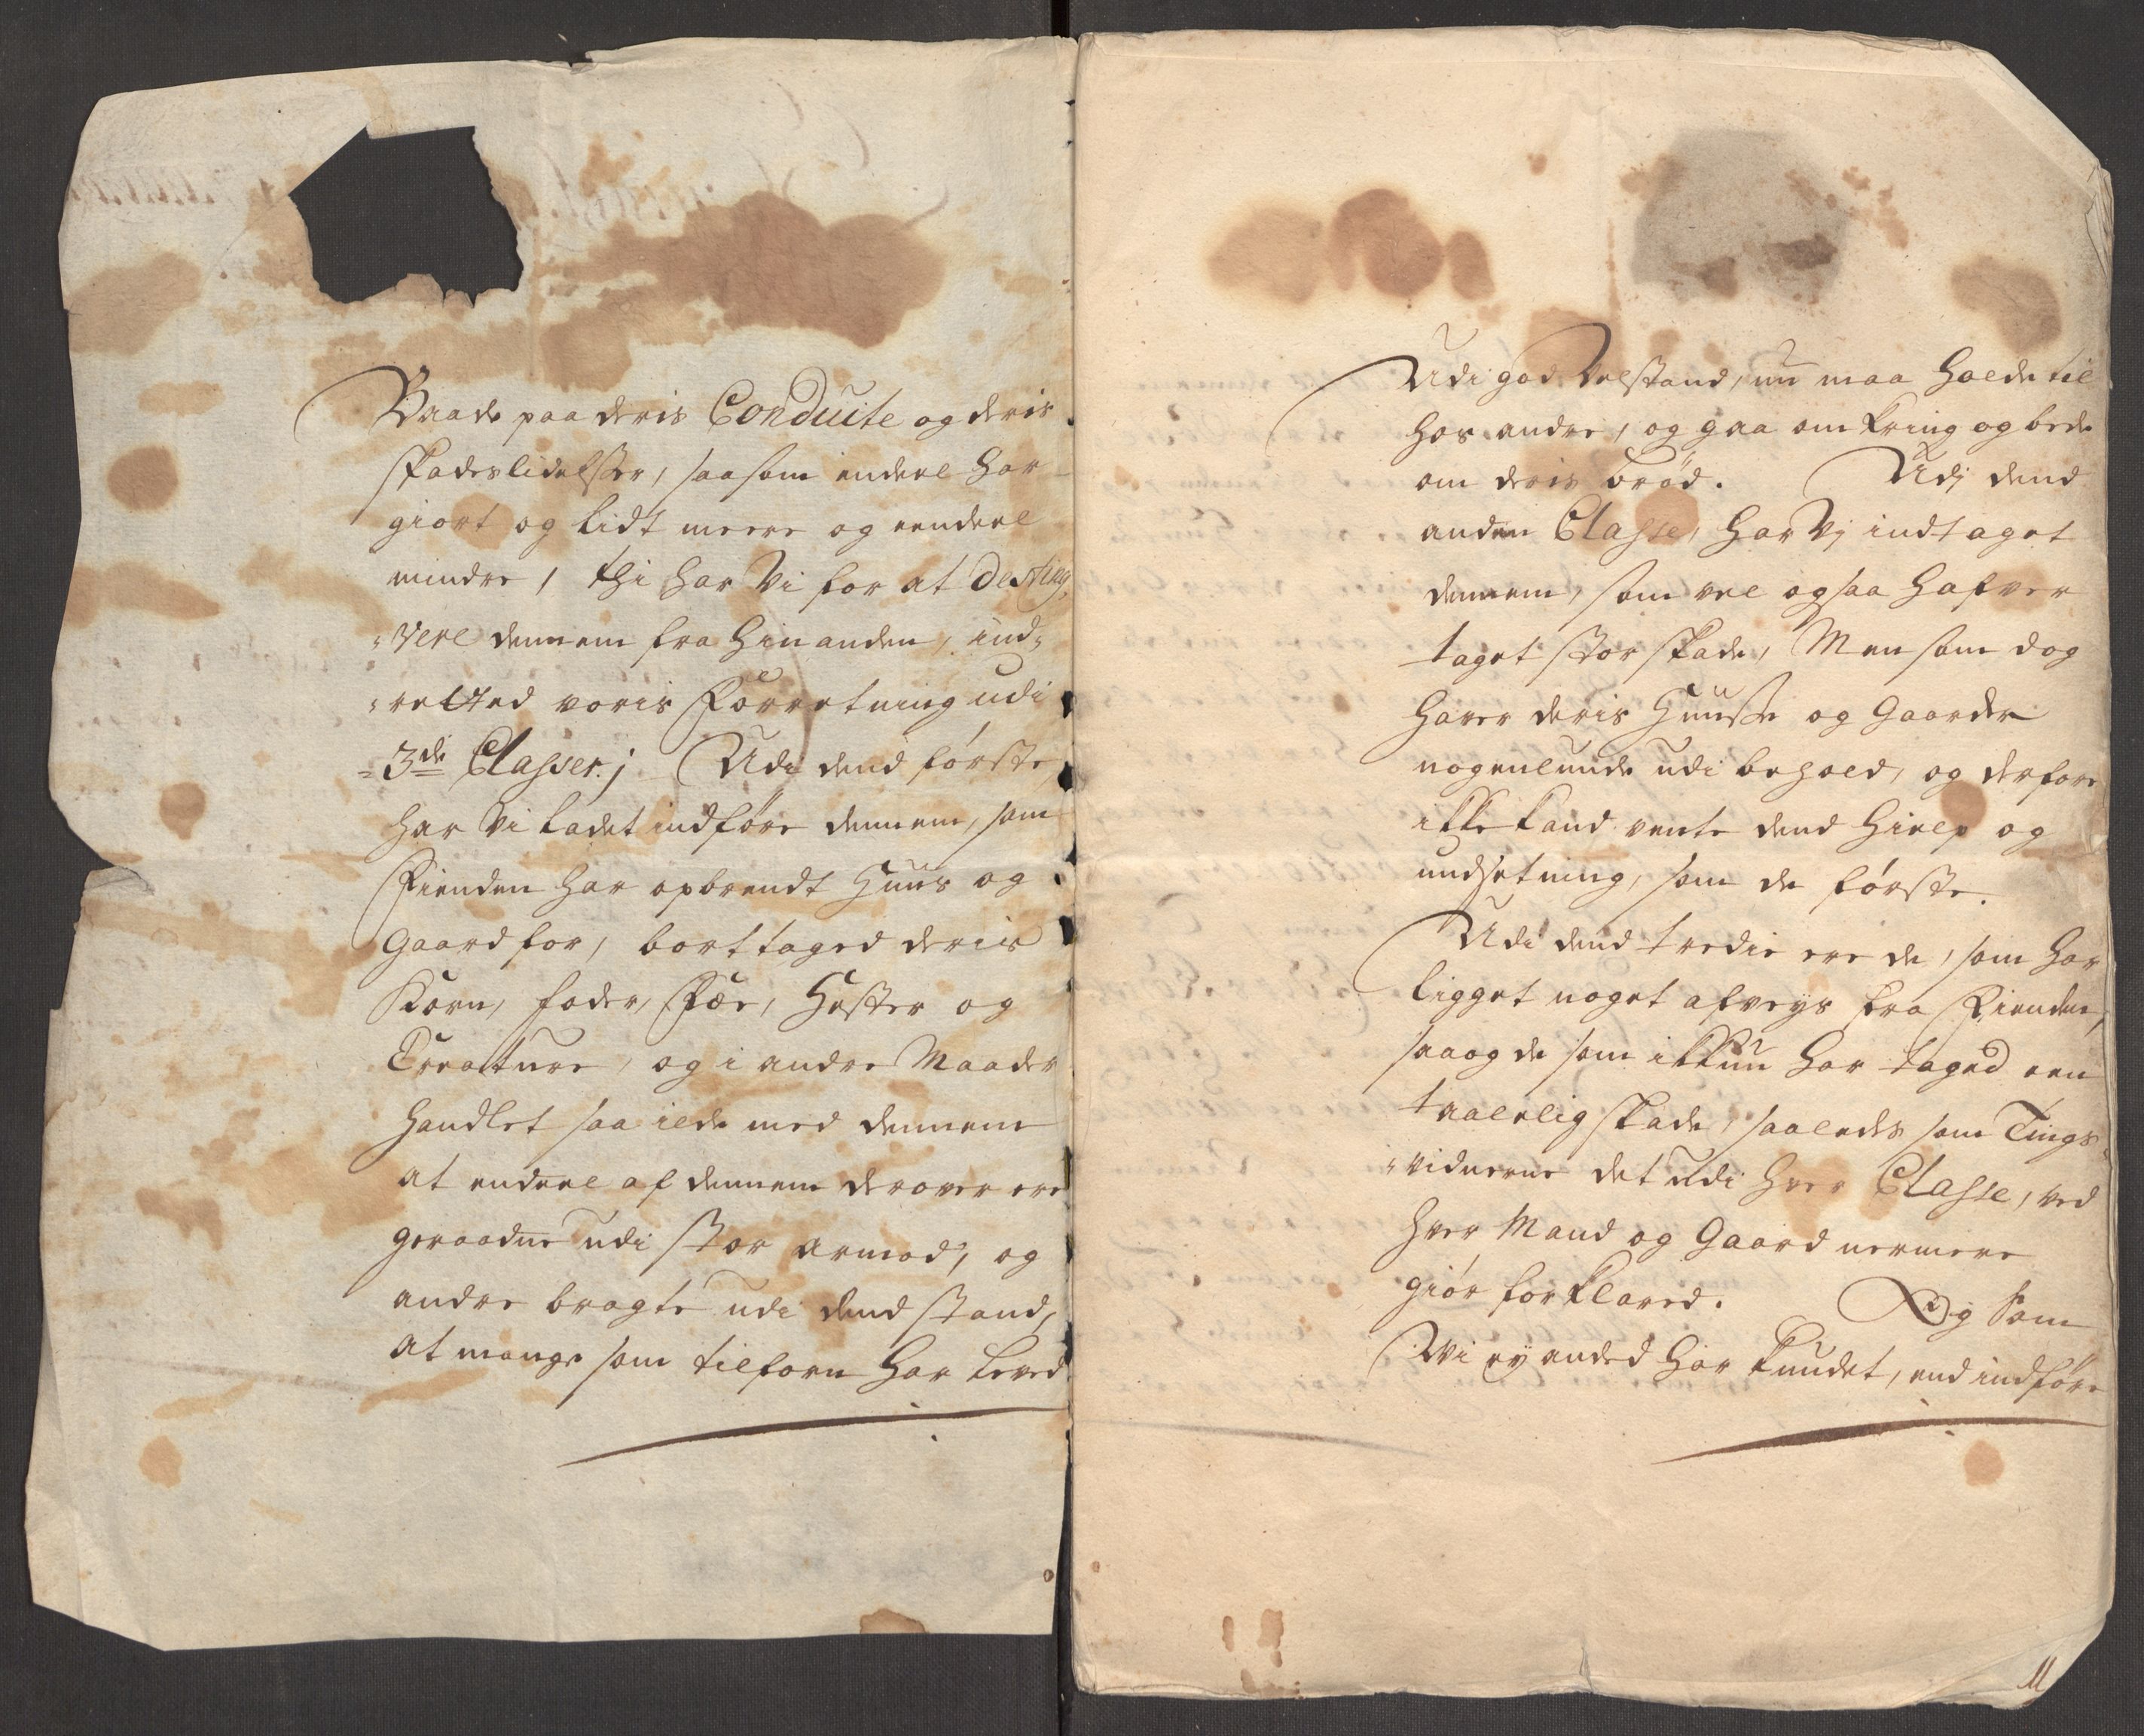 Baade paa deris Conduite og deris
skadeslidelsser, saasom endeel har
giort og lidt meere og eendeel
mindre, thi har Vi for at desting,
=vere dennem fra hinanden, ind=
=retted voris Forretning udi
=3de Classer. j Udi dend förste,
har Vi ladet indföre dennem, som
Fienden har opbrendt Huus og
Gaard for, borttaged deris
Korn, foder, Fæe, Hester og
Creature, og i andre Maader
handlet saa ilde med dennem
at endeel af dennem derover ere
geraadne udi stor armod, og
andre bragte udi dend stand,
at mange som tilforn har leved
Udi god Velstand, nu maa holde til
hos andre, og gaa omkring og bede
om deris bröd. Udj dend
anden Classe, har Vj indtaget
dennem, som vel ogsaa hafver
taget stor skade, Men som dog
haver deris Huusse og Gaarder
nogenlunde udi behold, og derfore
ikke kand vente dend hielp og
undsetning, som de förste.
Udi dend tredie ere de, som har
ligget noget afveys fra Fienden,
saa og de som ikkun har taged een
taalelig skade, saaledes som Tings
=vidnerne det udi hver Classe, ved
hver Mand og Gaard nermere
giör forklared. Og som
Wi ey anded har kundet, end indföre
11